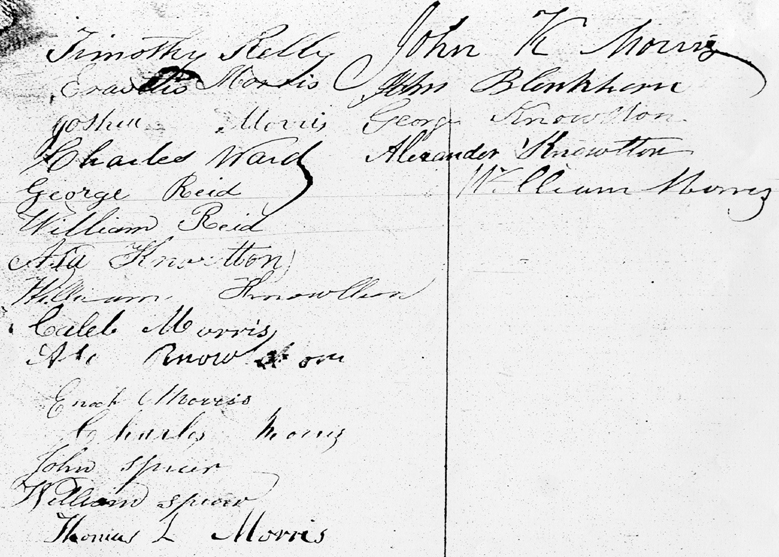 Timothy Kelly
Morris
Joshua Morris
Charles Ward
George Reid
William Reid
Asa Knowlton
William Knowlton
Caleb Morris
Enoch Morris
Charles Morris
John Spicer
William Spicer
Thomas L Morris
John K Morris
John Blenkhorn
George Knowlton
Alexander Knowlton
William Morris